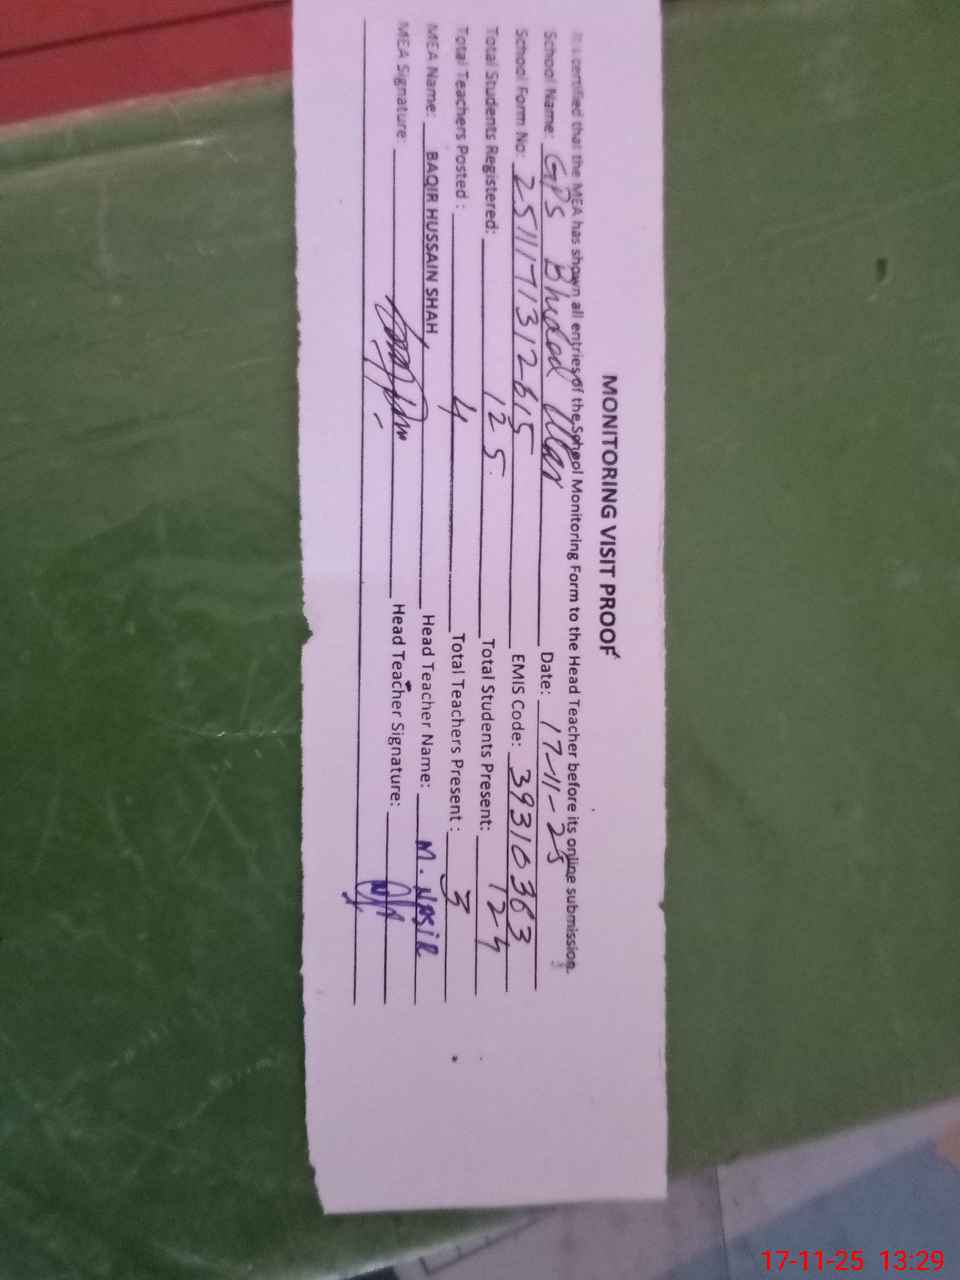 MONITORING VISIT PROOF
It is certified that the MEA has shown all entries of the School Monitoring Form to the Head Teacher before its online submission.
School Name: GPS Bhuded Date: 17-11-25
School Form No: 2511171312615 EMIS Code: 39310363
Total Students Registered: 125 Total Students Present: 124
Total Teachers Posted : 4 Total Teachers Present : 3
MEA Name: BAQIR HUSSAIN SHAH Head Teacher Name: M. NASIR
MEA Signature: Head Teacher Signature:
17-11-25 13:29